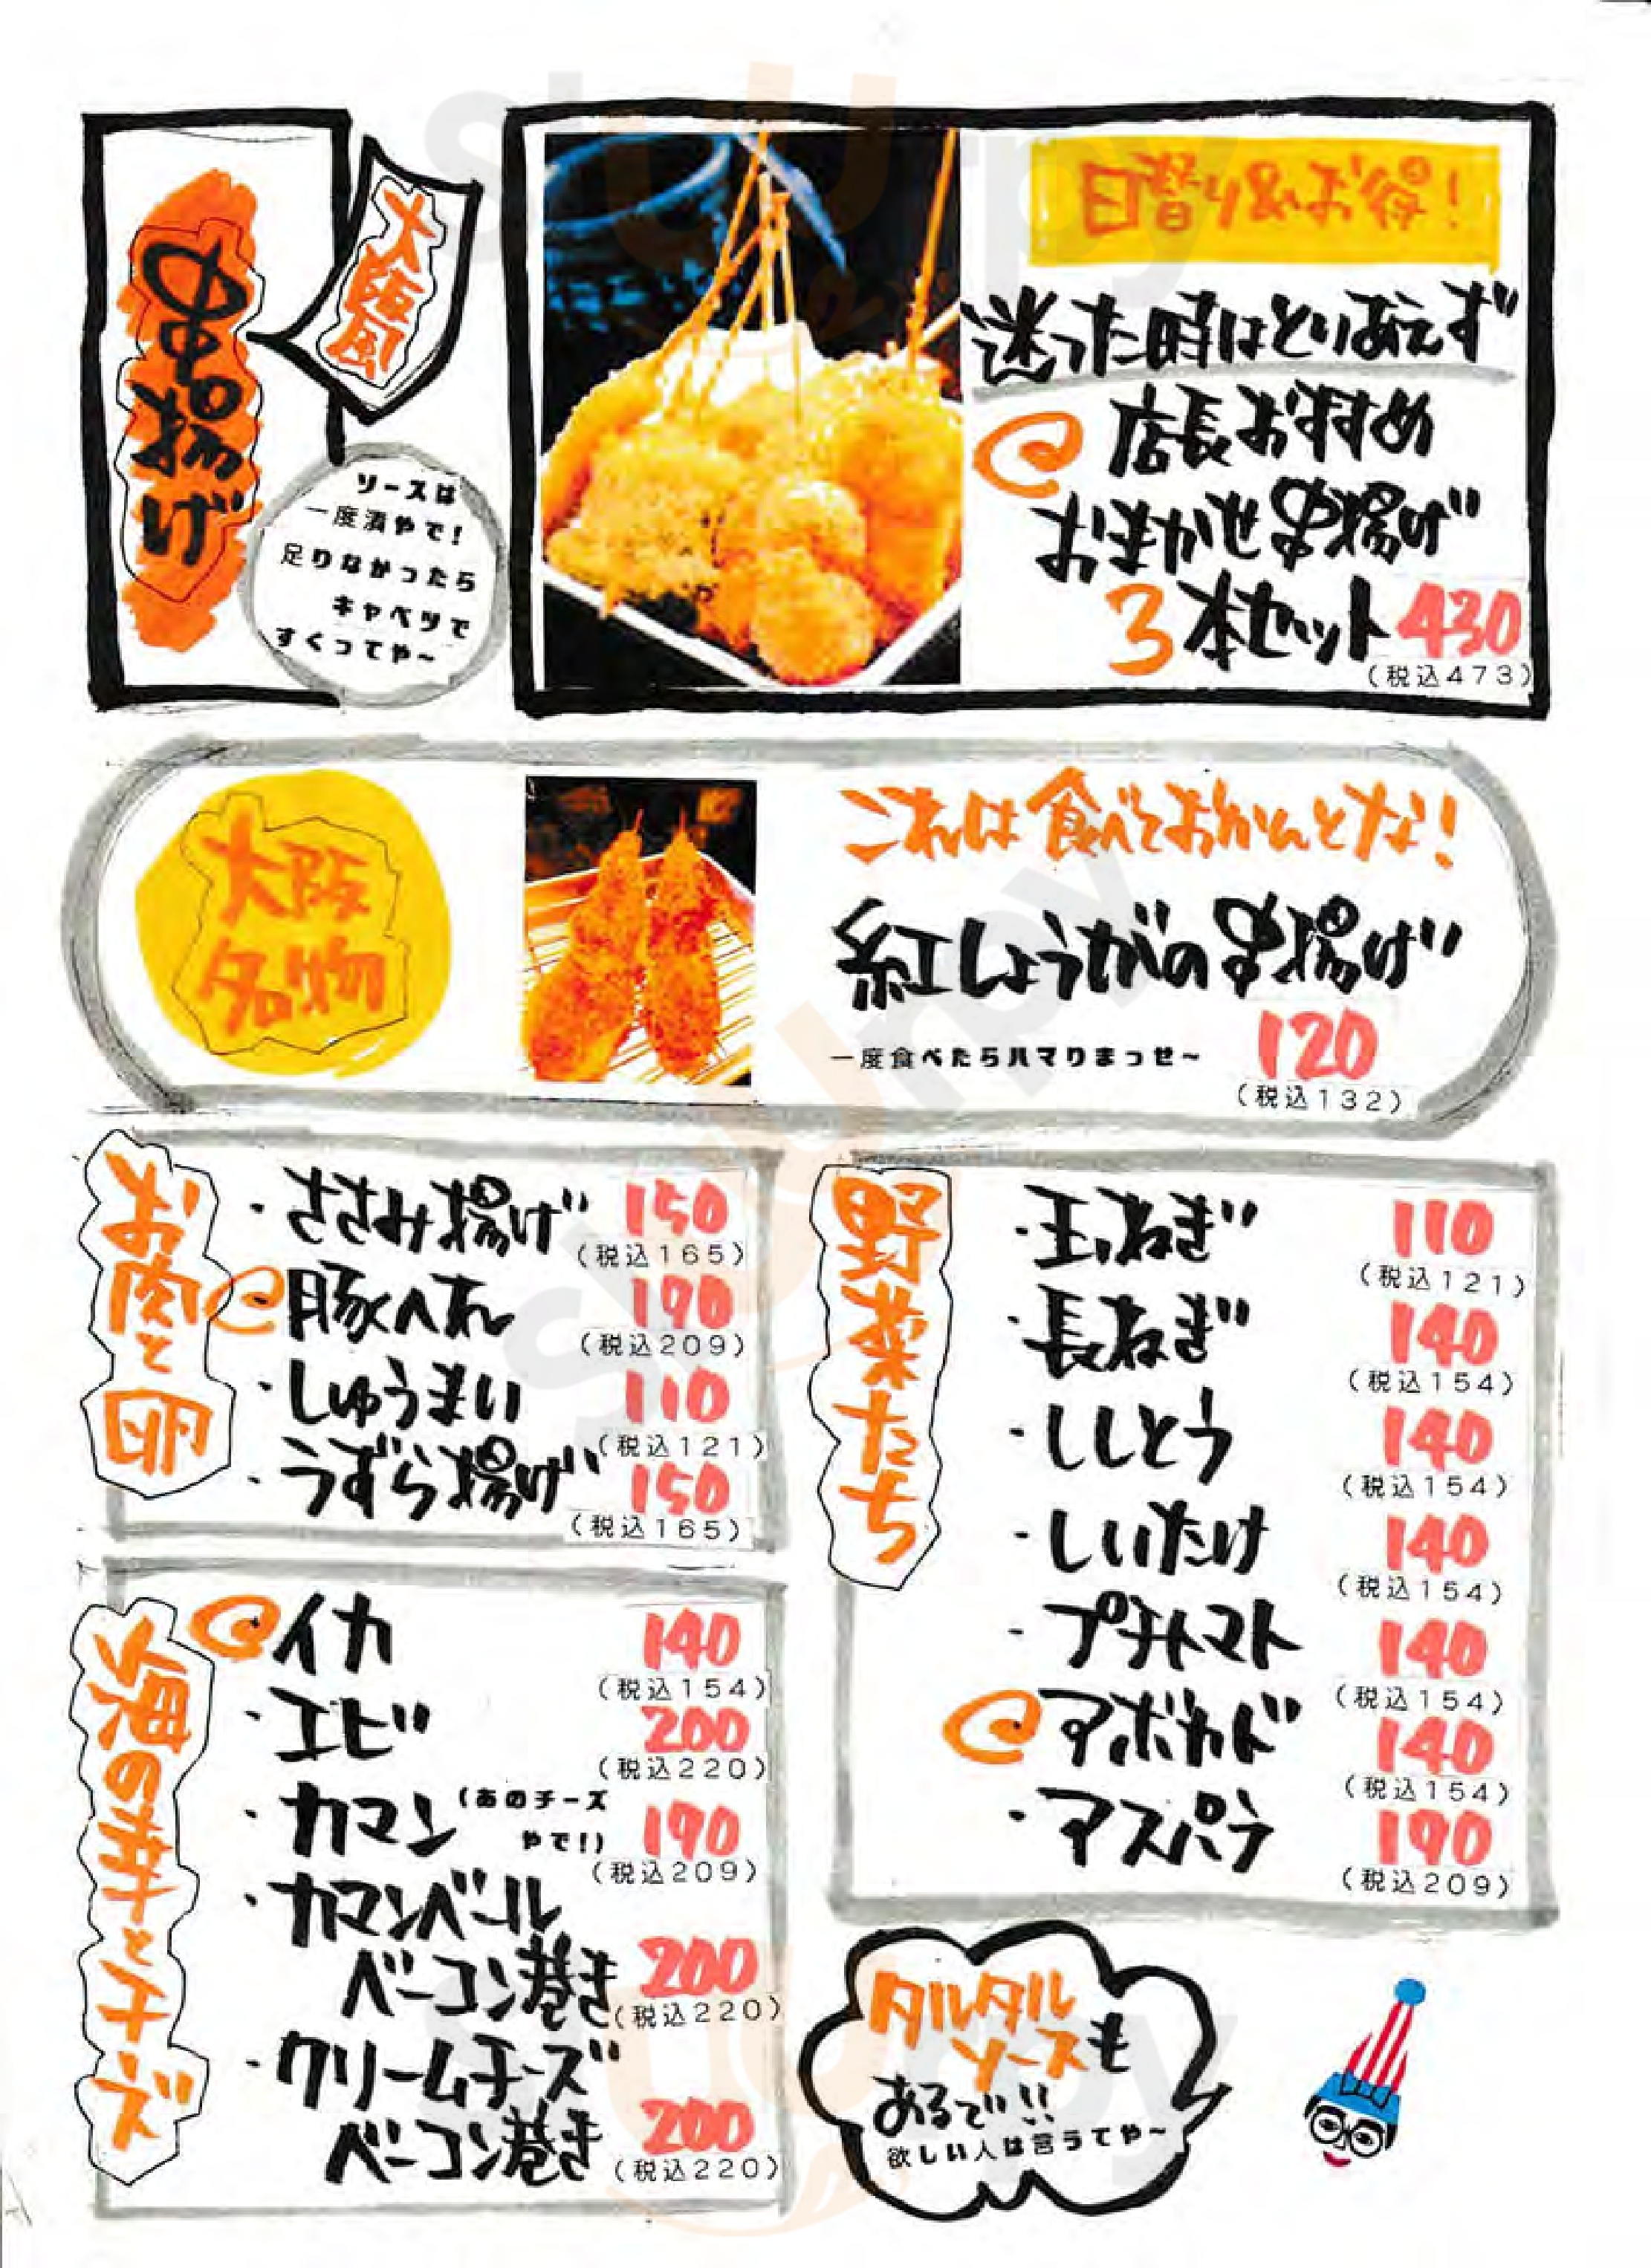 串揚げ
大阪風
ソースは
一度漬やで!
足りなかったら
キャベツで
すくってや~
日替り&お得!
迷った時はとりあえず
店長おすすめ
おまかせ串揚げ
3本セット 430
(税込473)
大阪
名物
これは食べておかんとな!
紅しょうがの串揚げ
一度食べたらハマりまっせ~ 120
(税込132)
お肉と卵
・ささみ揚げ 150
(税込165)
豚へれ 190
(税込209)
・しゅうまい 110
(税込121)
・うずら揚げ 150
(税込165)
海の幸とチーズ
イカ 140
(税込154)
・エビ 200
(税込220)
・カマン (あのチーズ
やで!) 190
(税込209)
・カマンベール
ベーコン巻き 200
(税込220)
・クリームチーズ
ベーコン巻き 200
(税込220)
野菜たち
・玉ねぎ 110
(税込121)
・長ねぎ 140
(税込154)
・ししとう 140
(税込154)
・しいたけ 140
(税込154)
・プチトマト 140
(税込154)
アボカド 140
(税込154)
・アスパラ 190
(税込209)
タルタル
ソースも
あるで!!
欲しい人は言うてや~
Sluurpy
Sluurpy
Sluurpy
Sluurpy